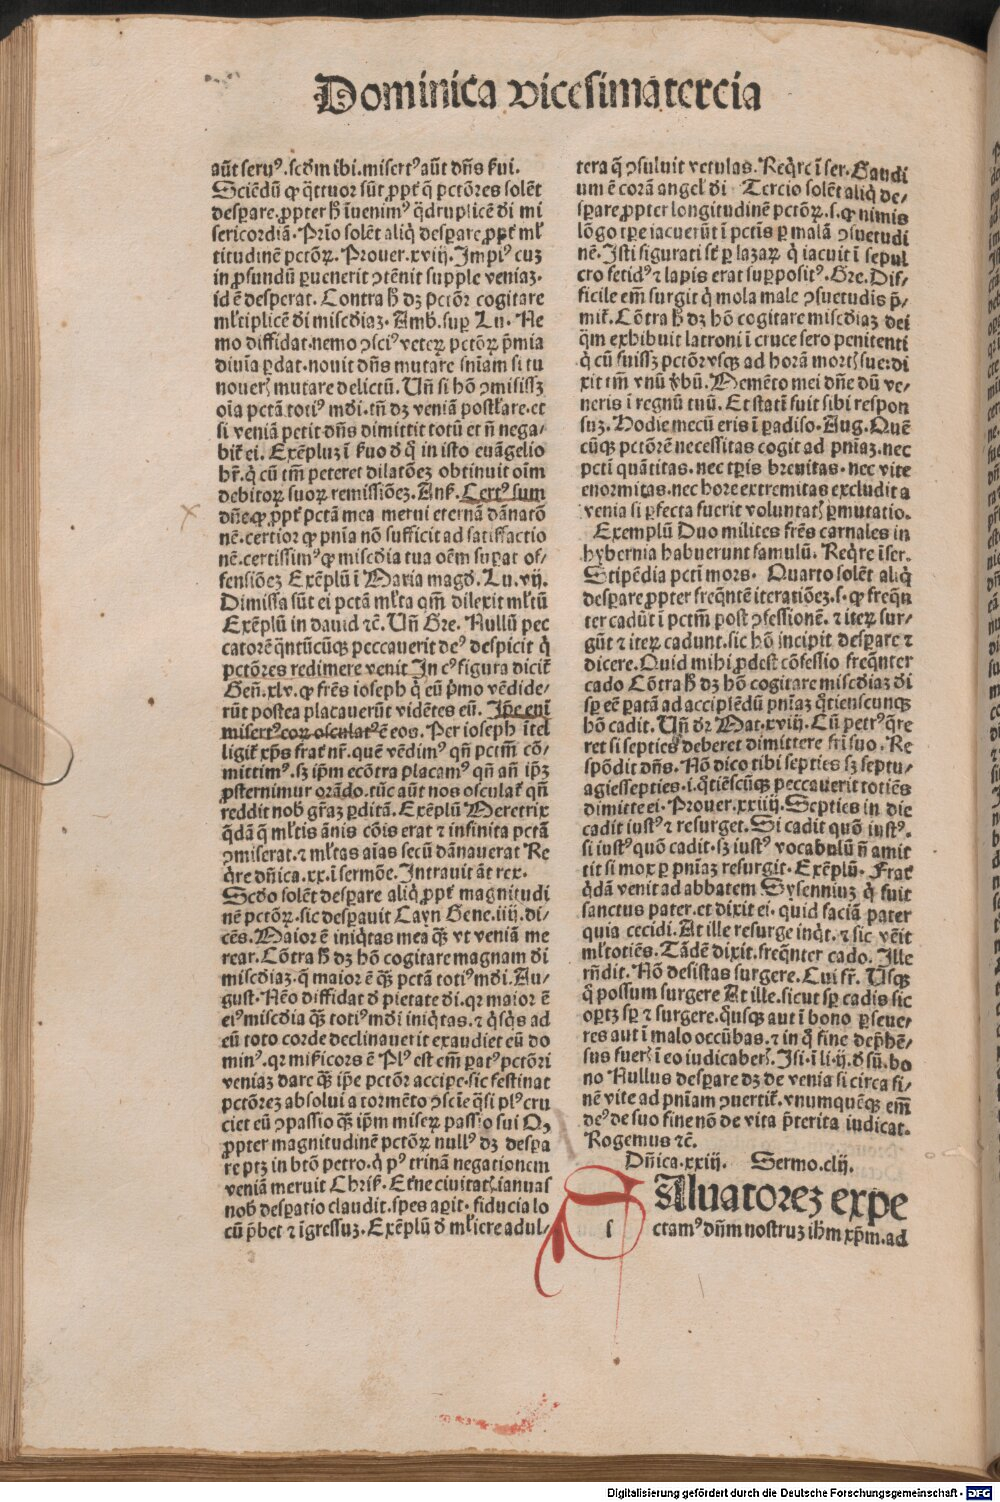 Dominica vicesimatercia
aūt seruꝰ.scd̄m ibi.misertꝰ aūt dn̄s ẜui.
Sciēdū ꝙ q̄ttuor sūt ꝓpt̄ q̄ pctōres solēt
desꝑare.ꝓpter h̄ īuenimꝰ q̄druplicē di mi
sericordiā.Prīo solēt aliq̄ desꝑare ꝓpt̄ ml̄
titudinē pctōꝝ.Prouer.xviij.Impiꝰ cuꝫ
in ꝓfundū ꝑuenerit ꝯtēnit supple veniaꝫ.
id ē desperat. Contra h̄ dꝫ pctōr cogitare
ml̄tiplicē di miscd̄iaꝫ.Amb.suꝑ Lu. Ne
mo diffidat.nemo ꝯsciꝰ veteꝝ pctōꝝ p̄mia
diuīa ꝑdat.nouit dn̄s mutare sn̄iam si tu
noueris mutare delictū. Un̄ si hō ꝯmisissꝫ
oīa pctā totiꝰ mdi.tn̄ dꝫ veniā postl̄are.et
si veniā petit dn̄s dimittit totū et n̄ nega/
bit̄ ei. Exēpluꝫ ī ẜuo d̄ q̄ in isto euāgelio
hr̄.q̄ cū tm̄ peteret dilatōeꝫ obtinuit oīm
debitoꝝ suoꝝ remissiōeꝫ.Anẜ.Certꝰ sum
dn̄e ꝙ ꝓpt̄ pctā mea merui eternā dānatō
nē.certior ꝙ pn̄ia nō sufficit ad satiffactio
nē.certissimꝰ ꝙ miscd̄ia tua oēm suꝑat of/
fensiōeꝫ Exēplū ī Maria magd̄.Lu.vij.
Dimissa sūt ei pctā ml̄ta qm̄ dilexit ml̄tū
Exēplū in dauid ⁊c̄. Un̄ Gre. Nullū pec
catorē q̄ntūcūqꝫ peccauerit deꝰ despicit q̄
pctōres redimere venit In cꝰ figura dicit̄
Gen̄.xlv.ꝙ frēs ioseph q̄ eū p̄mo vēdide/
rūt postea placauerūt vidētes eū. Ip̄e eni
misertꝰ eoꝝ osculatꝰ ē eos. Per ioseph ītel
ligit̄ xp̄s frat̄ nr̄.quē vēdimꝰ qn̄ pctm̄ cō/
mittimꝰ.sꝫ ip̄m ecōtra placamꝰ qn̄ an̄ ip̄ꝫ
ꝓsternimur orādo.tūc aūt nos osculat̄ qn̄
reddit nob̄ gr̄aꝫ ꝑditā.Exēplū Meretrix
q̄dā q̄ ml̄tis ānis cōis erat ⁊ infinita pctā
ꝯmiserat.⁊ ml̄tas aīas secū dānauerat Re
q̄re dn̄ica.xx.ī sermōe. Intrauit āt rex.
Scd̄o solēt desꝑare aliq̄ ꝓpt̄ magnitudi
nē pctōꝝ.sic desꝑauit Cayn Gene.iiij.di/
cēs.Maior ē iniq̄tas mea q̄ꝫ vt veniā me
rear. Cōtra h̄ dꝫ hō cogitare magnam di
miscd̄iaꝫ.q̄ maior ē q̄ꝫ pctā totiꝰ mdi.Au/
gust.Nēo diffidat d̄ pietate di.qr maior ē
eiꝰ miscd̄ia q̄ꝫ totiꝰ mdi iniq̄tas.⁊ q̄sq̄s ad
eū toto corde declinauerit exaudiet eū do
minꝰ.qr mīẜicors ē Plꝰ est em̄ ꝑatꝰ pctōri
veniaꝫ dare q̄ꝫ ip̄e pctōr accipe.sic festinat
pctōreꝫ absolui a tormēto ꝯscīe q̄si plꝰ cru
ciet eū ꝯpassio q̄ꝫ ip̄m miseꝝ passio sui Qꝫ
ꝓpter magnitudinē pctōꝝ nullꝰ dꝫ desꝑa
re ptꝫ in btō petro.q̄ pꝰ trinā negationem
veniā meruit Chriẜ. Et̄ne ciuitatis ianuas
nob̄ desꝑatio claudit.spes aꝑit.fiducia lo
cū p̄bet ⁊ īgressuꝫ.Exēplū d̄ ml̄iere adul/
tera q̄ ꝯsuluit vetulas.Req̄re ī ser.Gaudi
um ē corā angel̄ di Tercio solēt aliq̄ de/
sꝑare ꝓpter longitudinē pctōꝝ.s.ꝙ nimis
lōgo tꝑe iacuerūt ī pctis ꝑ malā ꝯsuetudi
nē.Isti figurati st̄ ꝑ lazaꝝ q̄ iacuit ī sepul
cro fetidꝰ ⁊ lapis erat suꝑpositꝰ.Gre.Dif/
ficile em̄ surgit q̄ mola male ꝯsuetudis p̄/
mit̄. Cōtra h̄ dꝫ hō cogitare miscd̄iaꝫ dei
q̄m exhibuit latroni ī cruce sero penitenti
q̄ cū fuissꝫ pctōr vsqꝫ ad horā mortis sue.di
xit tm̄ vnū v̄bū. Memēto mei dn̄e dū ve/
neris ī regnū tuū. Et statī fuit sibi respon
suꝫ.Hodie mecū eris ī ꝑadiso.Aug.Quē
cūqꝫ pctōrē necessitas cogit ad pn̄iaꝫ.nec
pcti quātitas.nec tꝑis breuitas.nec vite
enormitas.nec hore extremitas excludit a
venia si ꝑfecta fuerit voluntatis ꝑmutatio.
Exemplū Duo milites frēs carnales in
hybernia habuerunt famulū. Req̄re ī ser.
Stipēdia pcti mors. Quarto solēt aliq̄
desꝑare ꝓpter freq̄ntē iteratiōeꝫ.s.ꝙ freq̄n
ter cadūt ī pctm̄ post ꝯfessionē.⁊ iteꝝ sur/
gūt ⁊ iteꝝ cadunt.sic hō incipit desꝑare ⁊
dicere.Quid mihi ꝓdest cōfessio freq̄nter
cado Cōtra h̄ dꝫ hō cogitare miscd̄iaꝫ di
sꝑ eē ꝑatā ad accipiēdū pn̄iaꝫ q̄tienscunqꝫ
hō cadit. Un̄ dr̄ Mat.xviij. Cū petrꝰ q̄re
ret si septies deberet dimittere fri suo. Re
spōdit dn̄s. Nō dico tibi septies sꝫ septu/
agiessepties.i.q̄tiēscūqꝫ peccauerit totiēs
dimitte ei. Prouer.xxiiij.Septies in die
cadit iustꝰ ⁊ resurget.Si cadit quō iustꝰ.
si iustꝰ quō cadit.sꝫ iustꝰ vocabulū n̄ amit
tit si mox ꝑ pn̄iaꝫ resurgit.Exēplū. Frat̄
q̄dā venit ad abbatem Sysenniuꝫ q̄ fuit
sanctus pater.et dixit ei.quid faciā pater
quia cecidi. At ille resurge inq̄t.⁊ sic vēit
ml̄totiēs.Tādē dixit.freq̄nter cado. Ille
rn̄dit. Nō desistas surgere.Cui fr̄. Usqꝫ
q̄ possum surgere At ille.sicut sꝑ cadis sic
oportꝫ sꝑ ⁊ surgere.q̄usqꝫ aut ī bono ꝑseue/
res aut ī malo occūbas.⁊ in q̄ fine dep̄hē/
sus fueris ī eo iudicaberis.Isi.ī li.ij.d̄ sū.bo
no Nullus desꝑare dꝫ de venia si circa fi/
nē vite ad pn̄iam ꝯuertit̄.vnumquēqꝫ em̄
deꝰ de suo fine nō de vita p̄terita iudicat.
Rogemus ⁊c̄.
Dn̄ica.xxiij. Sermo.clij.
Aluatoreꝫ expe
s ctamꝰ dn̄m nostruꝫ ihm̄ xp̄m.ad
Digitalisierung gefördert durch die Deutsche Forschungsgemeinschaft - DFG